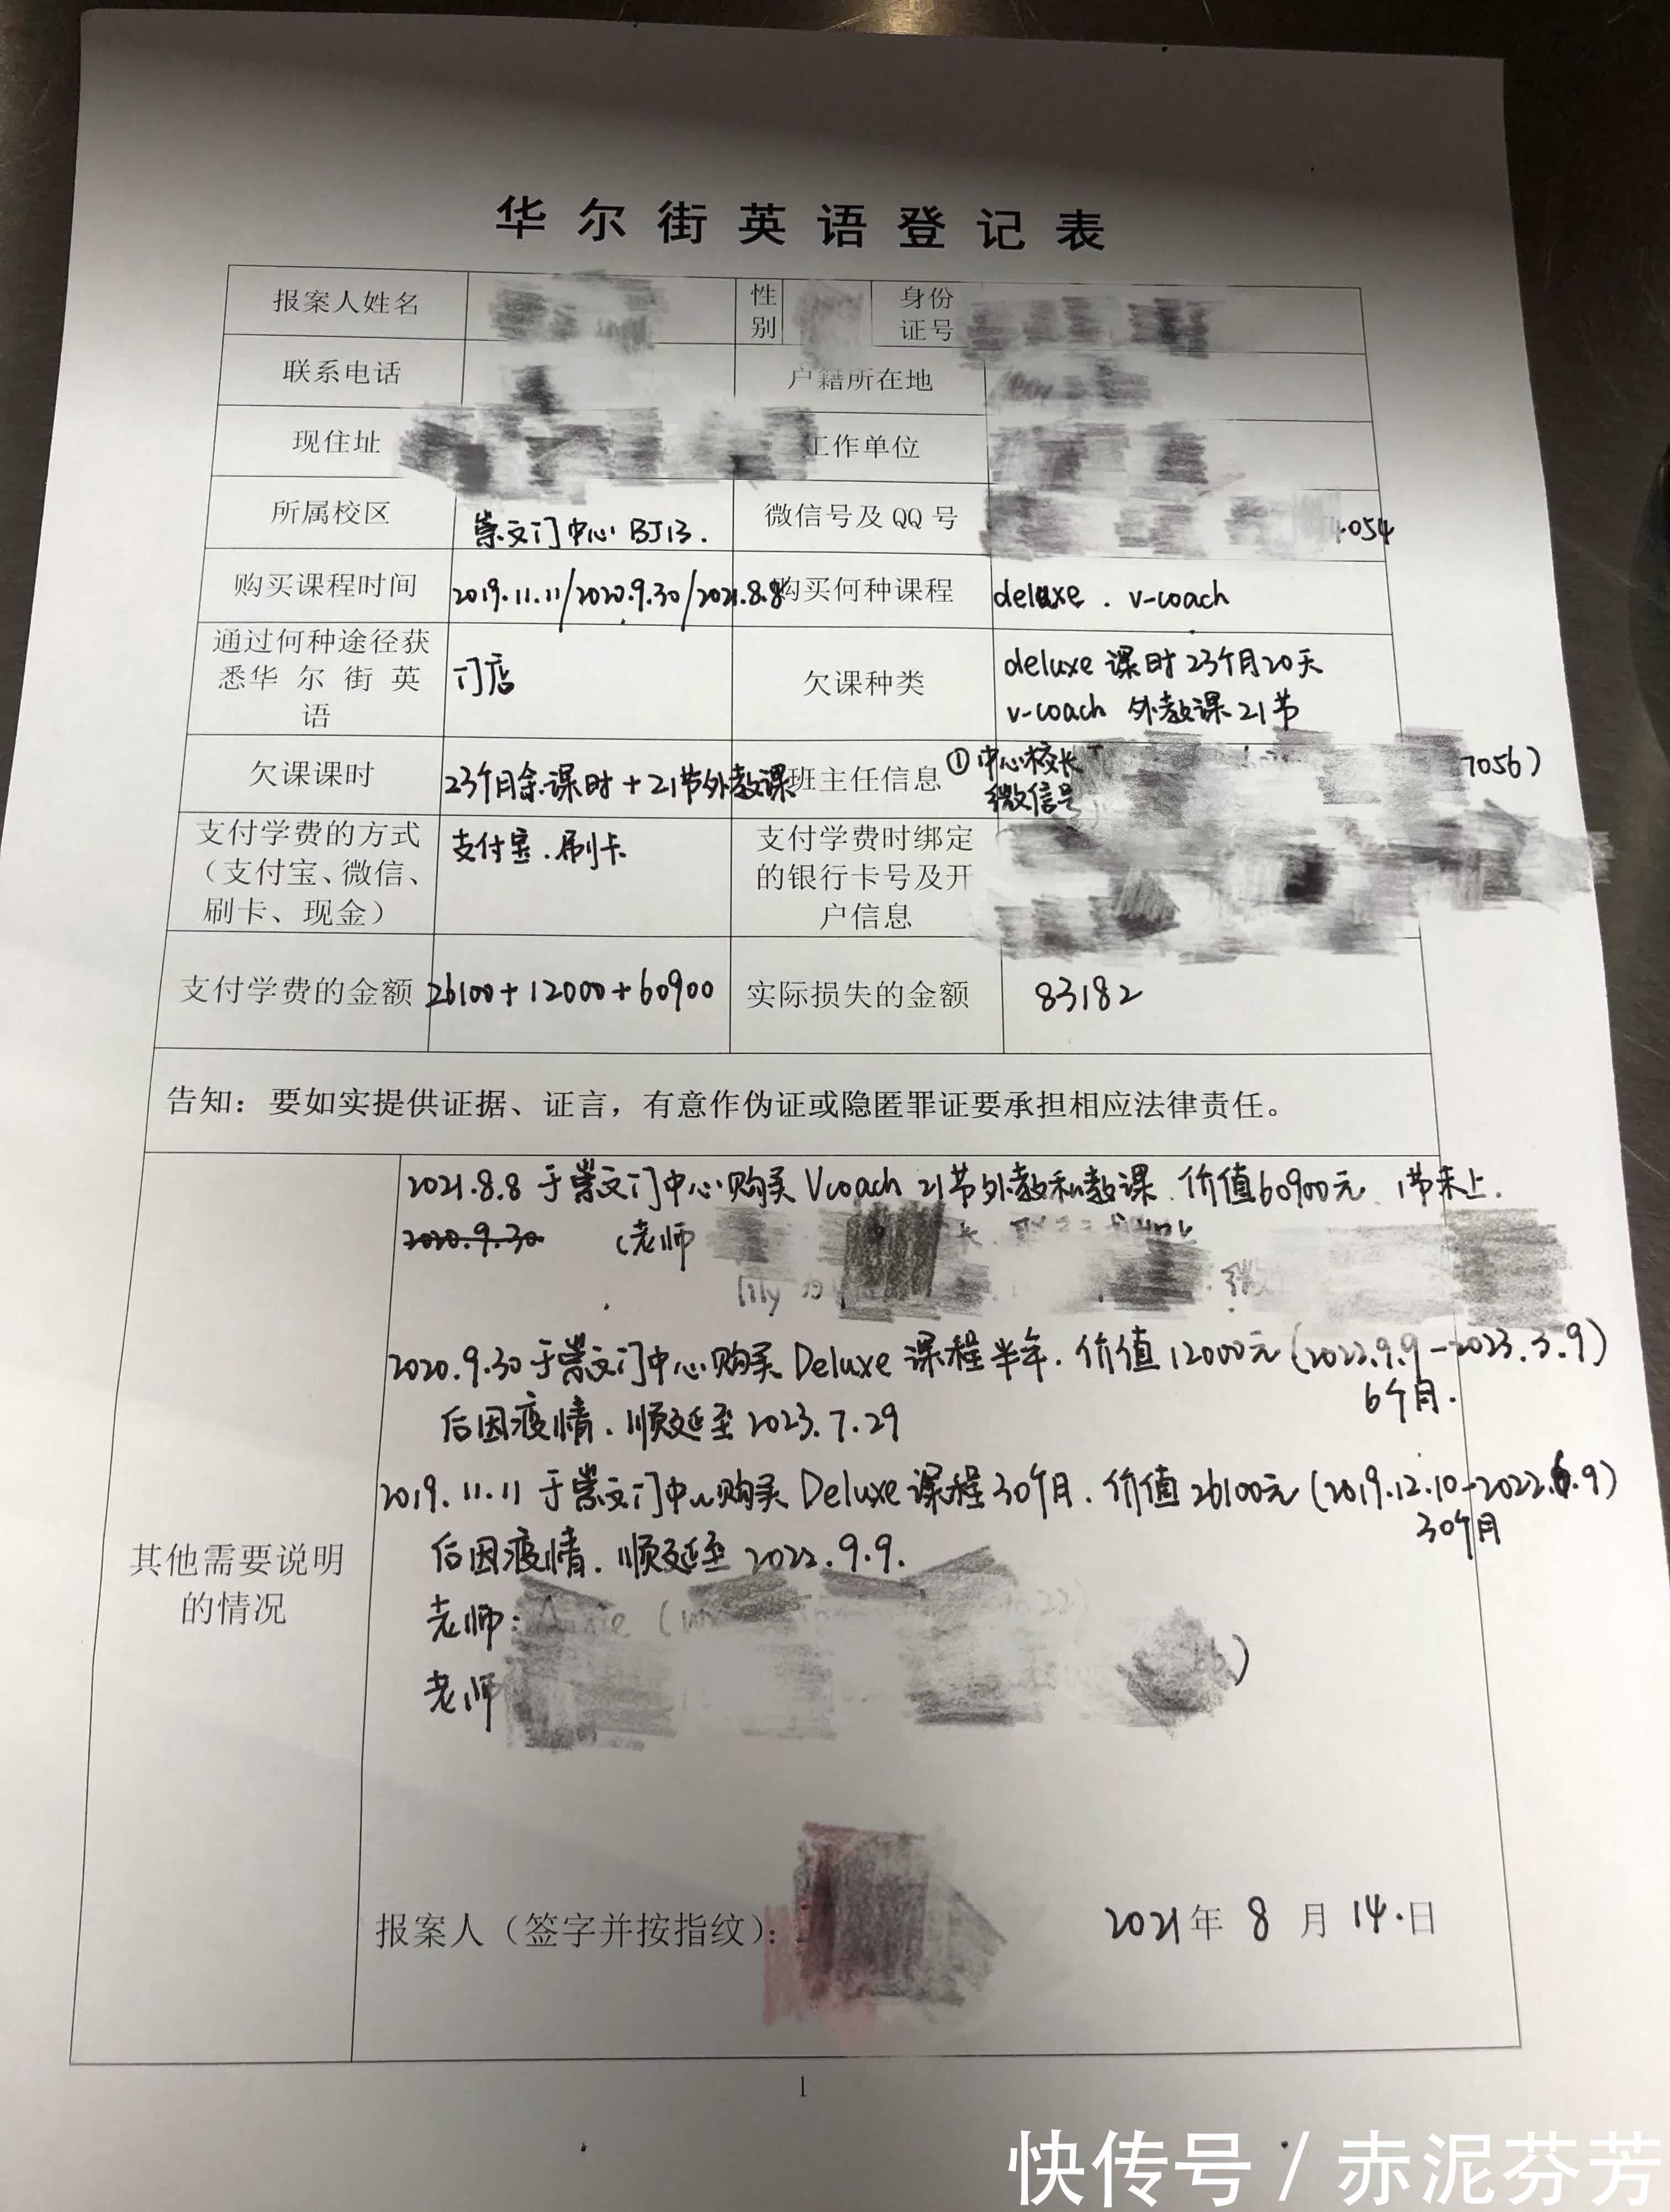 华尔街英语登记表
报案人姓名 性别 身份证号
联系电话 户籍所在地
现住址 工作单位
所属校区 崇文门中心 BJ13. 微信号及QQ号 4054
购买课程时间 2019.11.11/2020.9.30/2021.8.8 购买何种课程 deluxe . v-coach
通过何种途径获悉华尔街英语 门店 欠课种类 deluxe 课时 23个月20天
v-coach 外教课 21节
欠课课时 23个月余课时+21节外教课 班主任信息 ①中心校长 7056)
微信号
支付学费的方式(支付宝、微信、刷卡、现金) 支付宝.刷卡 支付学费时绑定的银行卡号及开户信息
支付学费的金额 26100+12000+60900 实际损失的金额 83182
告知:要如实提供证据、证言,有意作伪证或隐匿罪证要承担相应法律责任。
其他需要说明的情况
2021.8.8 于崇文门中心购买 Vcoach 21节外教私教课.价值60900元.1节未上.
2020.9.30 (老师
lily
2020.9.30于崇文门中心购买 Deluxe 课程半年.价值12000元(2022.9.9-2023.3.9)
6个月.
后因疫情.顺延至2023.7.29
2019.11.11 于崇文门中心购买 Deluxe 课程30个月.价值26100元(2019.12.10-2022.6.9)
30个月
后因疫情.顺延至2022.9.9.
老师:
老师 )
报案人(签字并按指纹): 2021年 8 月 14.日
1
快传号/赤泥芬芳